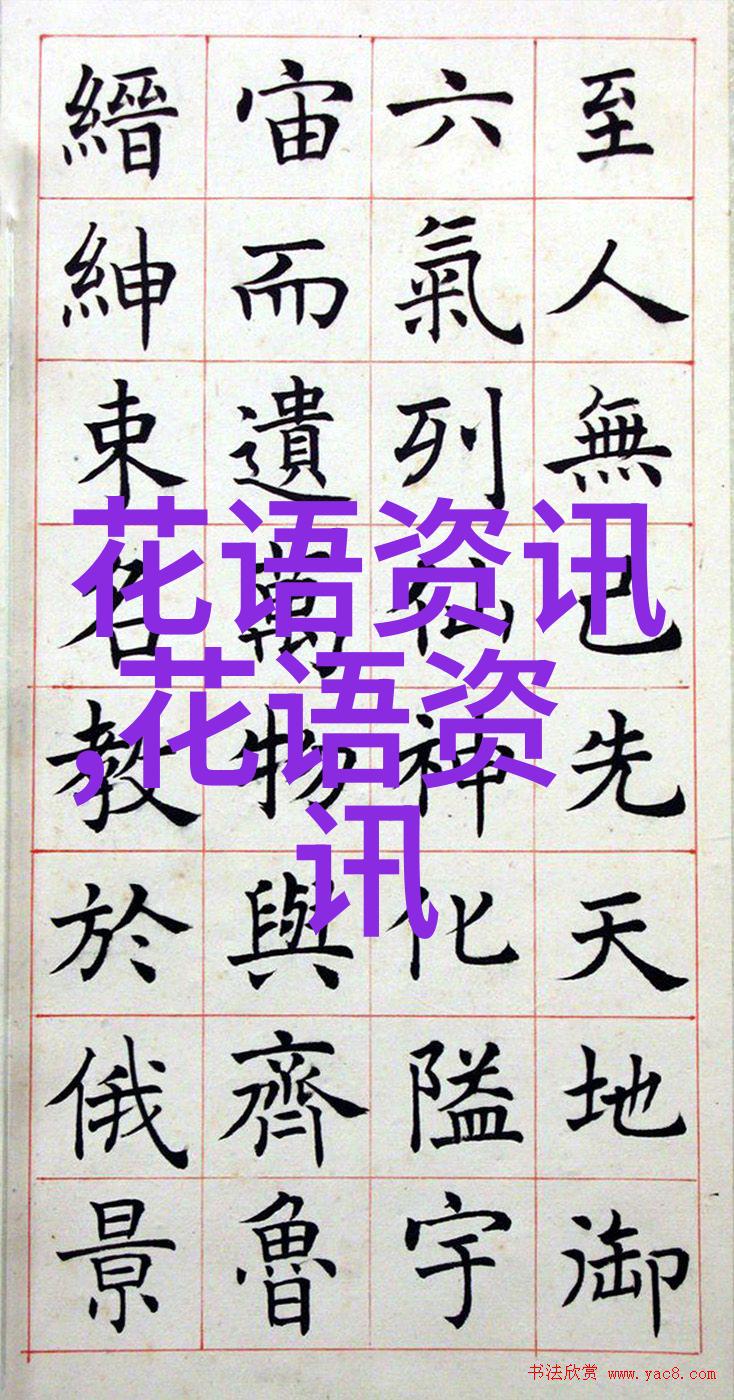 至人無己先天地御
六氣列仙神化隘宇
宙而遺萬物與齊魯
縉紳束名教於俄景
花语资讯
,花语资
讯
书法欣赏 www.yac8.com